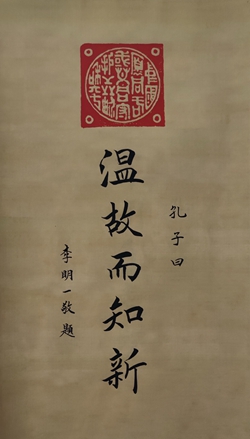 孔子曰
温故而知新
李明一敬題